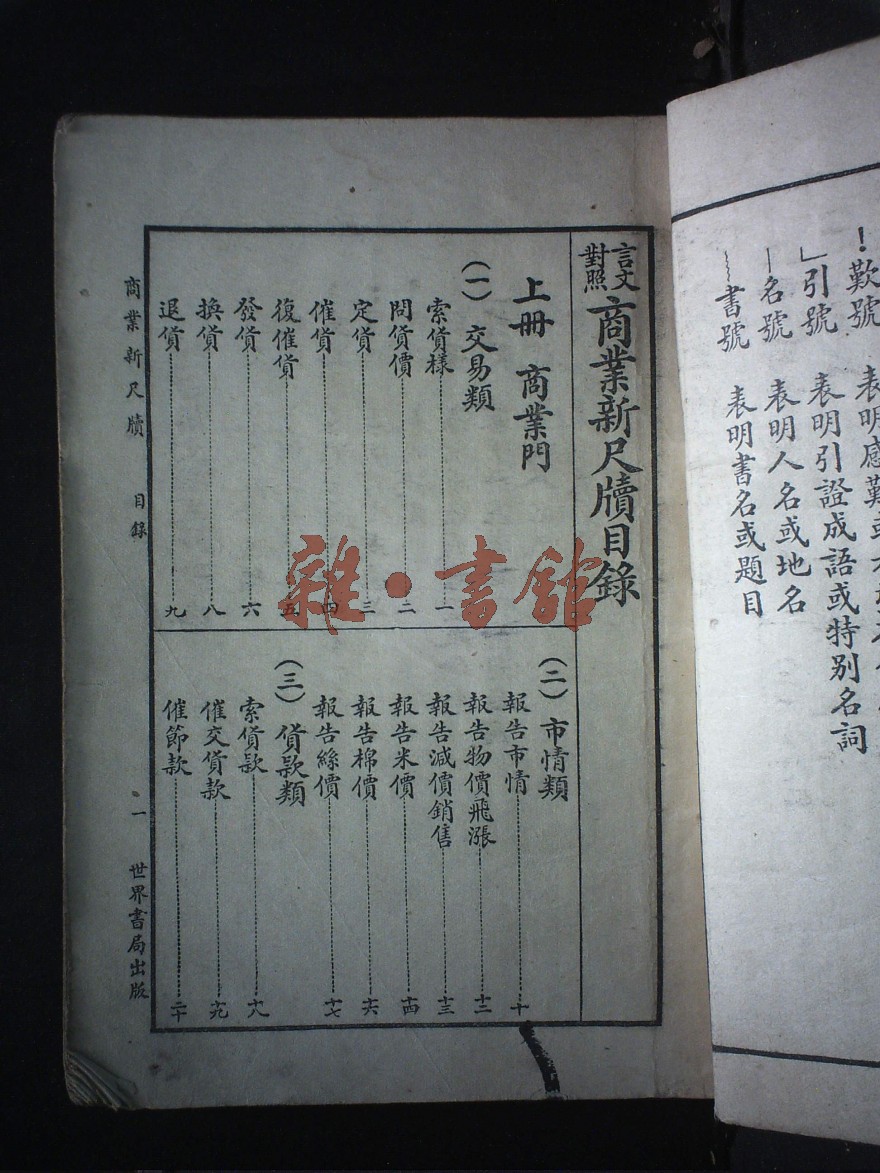 ！歎號　表明感歎或
」引號　表明引證成語或特别名詞
—名號　表明人名或地名
﹏書號　表明書名或題目
言文對照商業新尺牘目錄
上冊　商業門
（一）交易類
索貨樣……一
問貨價……二
定貨……三
催貨……四
復催貨……五
發貨……六
換貨……八
退貨……九
（二）市情類
報告市情……十
報告物價飛漲……十二
報告減價銷售……十三
報告米價……十四
報告棉價……十六
報告絲價……十七
（三）貨款類
索貨款……十八
催交貨款……十九
催節款……二十
商業新尺牘　目錄　一　世界書局出版
雜·書館